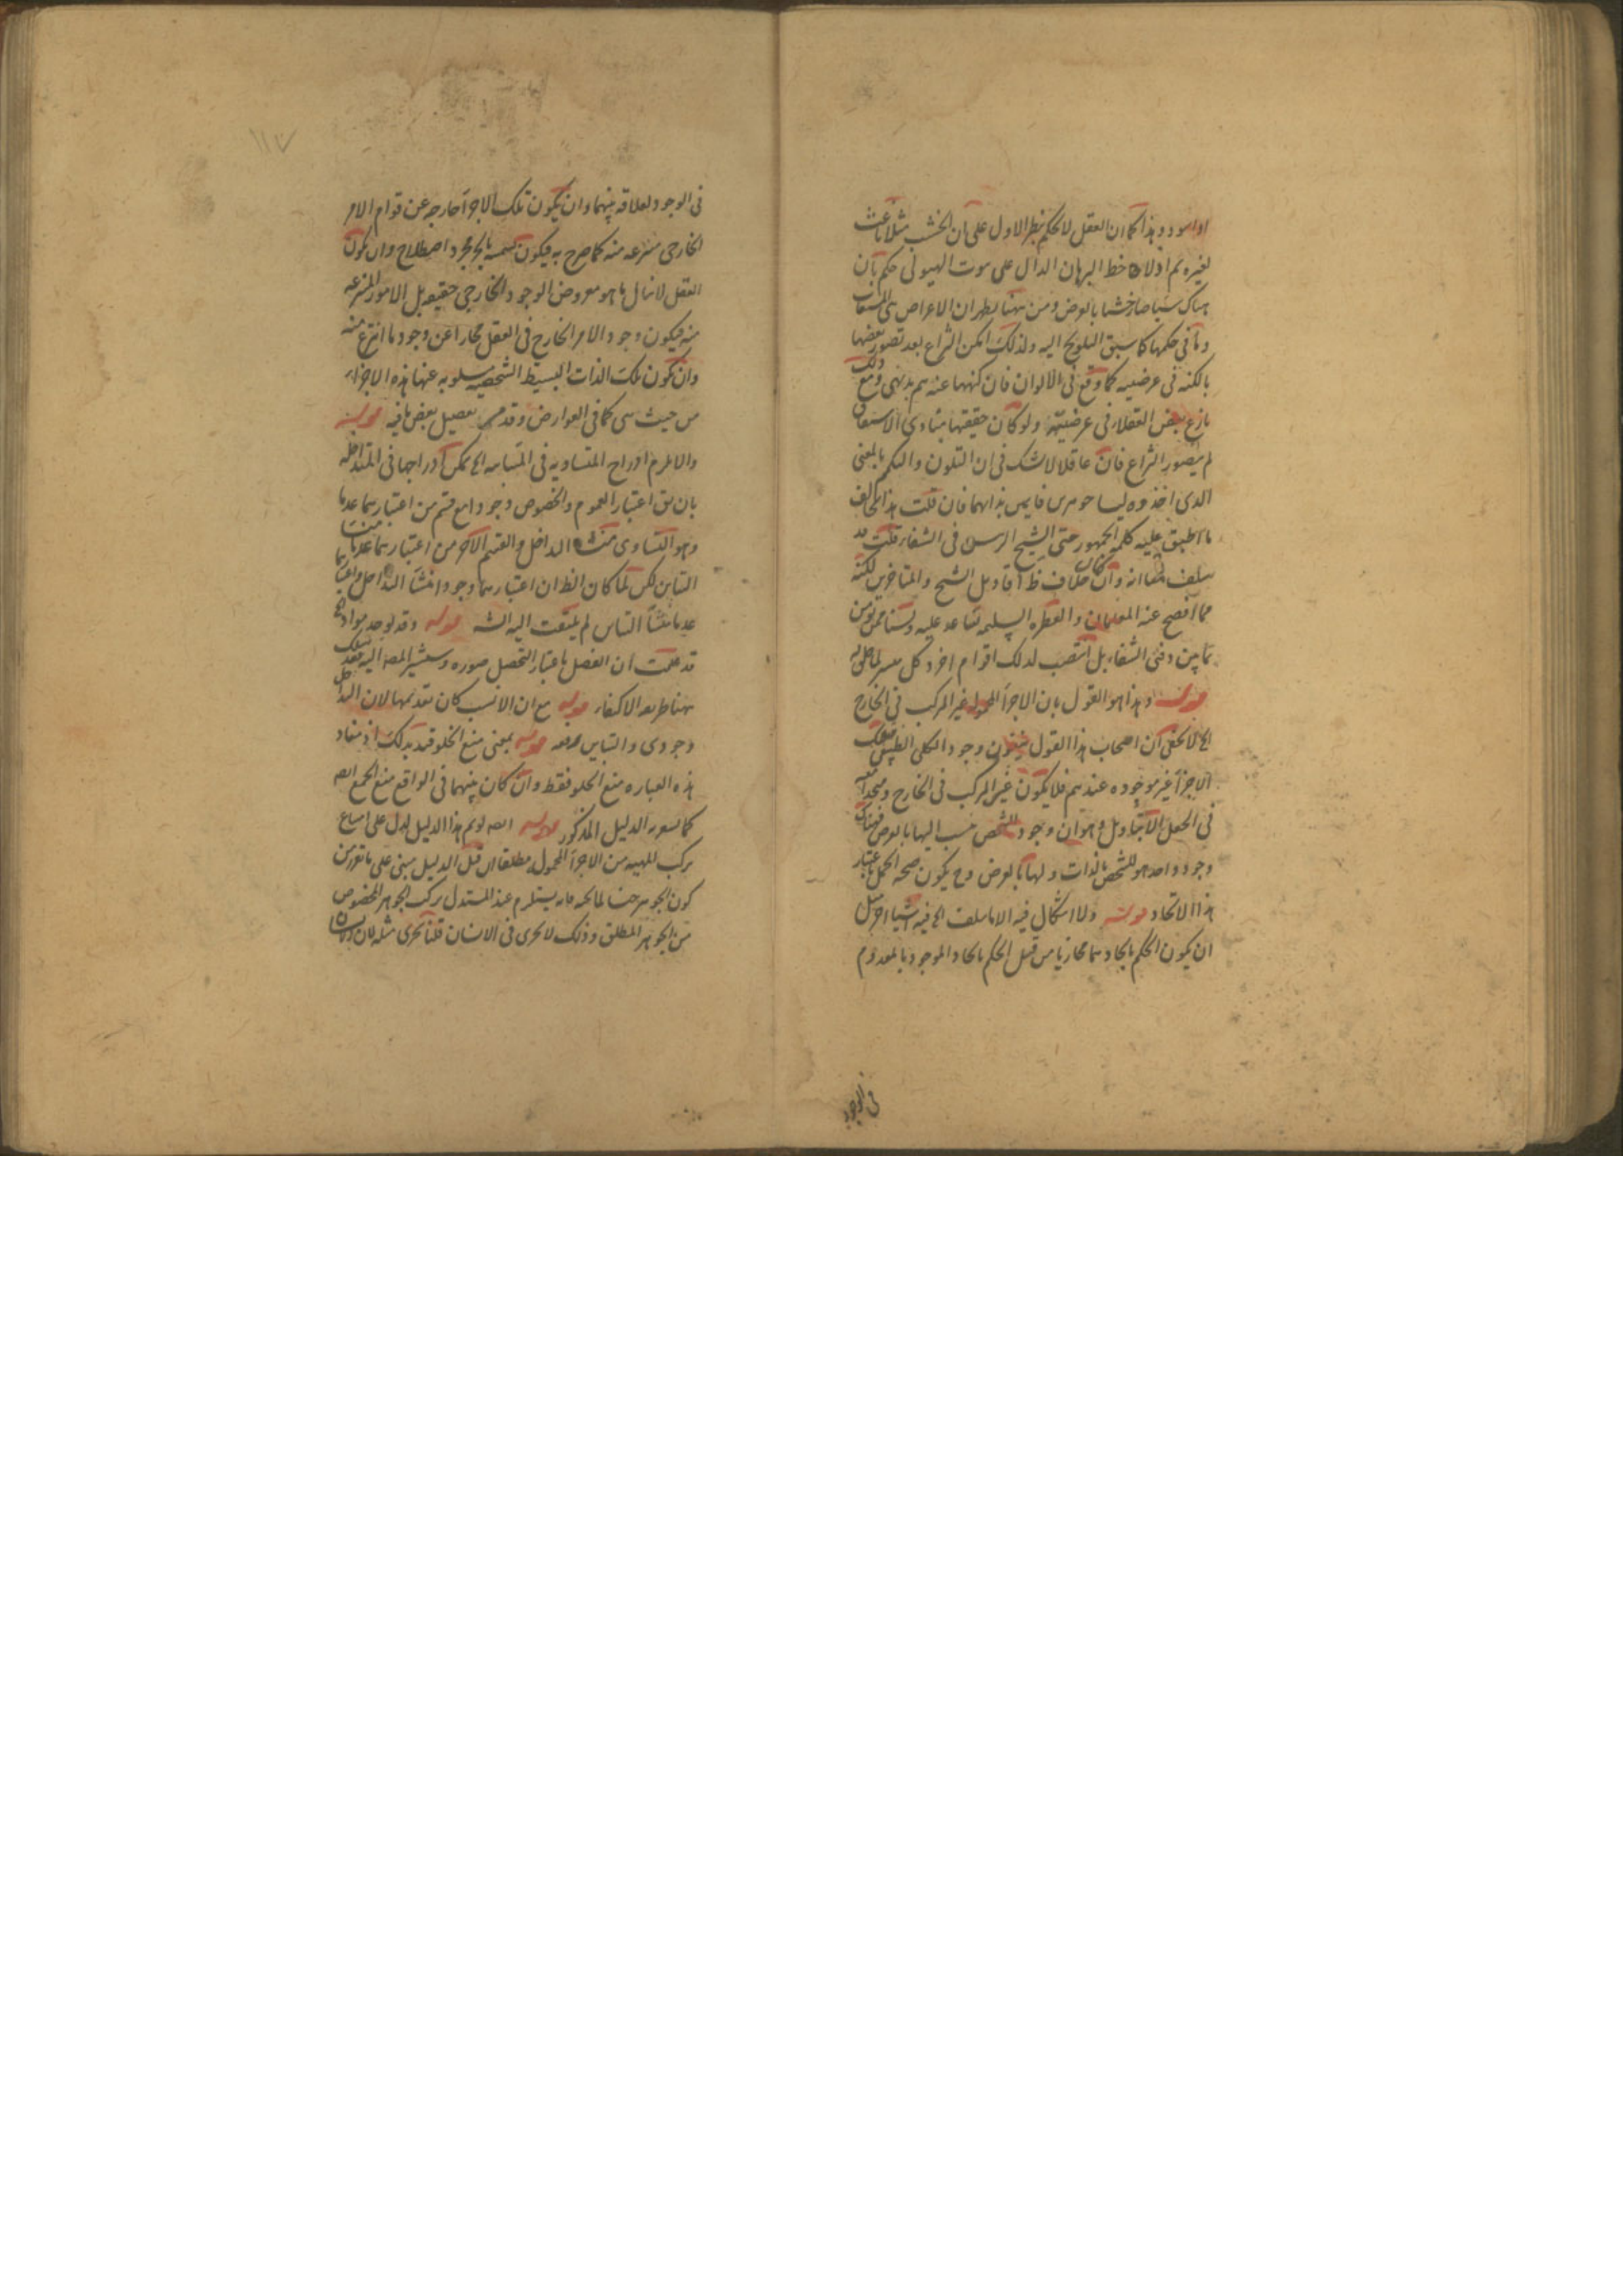 او اسود وهذا كما ان العقل لا يحكم بنظر الاول على ان الخشب مثلا ناعت
لغيره ثم اذا لاحظ البرهان الدال على ثبوت الهيولى حكم بان
هناك شيئا صار خشبا بالعرض ومن هنا يظهر ان الاعراض هي المشتقات
وما في حكمها كما سبق التلويح اليه ولذلك امكن النزاع بعد تصور بعضها
بالكنه في عرضيته كما وقع في الالوان فان كنهها عندهم بديهي ومع ذلك
نازع بعض العقلاء في عرضيته ولو كان حقيقتها مبادى الاشتقاق
لم يتصور النزاع فان عاقلا لا يشك في ان التلون والتكمم بالمعنى
الذى اخذوه ليسا جوهرين قائمين بذاتهما فان قلت هذا يخالف
ما اطبق عليه كلمة الجمهور حتى الشيخ الرئيس في الشفاء قلت قد
سلف منا انه وان كان خلاف ظ اقاويل الشيخ والمتاخرين لكنه
مما افصح عنه المعلمان والفطرة السليمة تساعد عليه ولسنا ممن نؤمن
بما بين دفتى الشفاء بل انتصب لذلك اقوام اخر وكل ميسر لما خلق له
قوله وهذا هو القول بان الاجزاء المحمولة غير المركب في الخارج
الخ لا يخفى ان اصحاب هذا القول ينفون وجود الكلى الطبيعى فتلك
الاجزاء غير موجودة عندهم فلا يكون غير المركب في الخارج ومتحدا معه
في الجعل الا بتاويل وهو ان وجود الشخص ينسب اليها بالعرض فهناك
وجود واحد هو للشخص بالذات ولها بالعرض وح يكون صحة الحمل باعتبار
هذا الاتحاد قوله ولا اشكال فيه الا ما سلف الخ فيه اشياء اخر مثل
ان يكون الحكم باتحادهما مجازيا من قبيل الحكم باتحاد الموجود بالمعدوم
في الوجود
١١٧
في الوجود لعلاقة بينهما وان يكون تلك الاجزاء خارجة عن قوام الامر
الخارجى منتزعة منه كما صرح به فيكون تسميته بالجزء مجرد اصطلاح وان يكون
العقل لا ينال ما هو معروض الوجود الخارجى حقيقة بل الامور المنتزعة
منه فيكون وجود الامر الخارج في العقل مجازا عن وجود ما انتزع منه
وان يكون تلك الذات البسيط الشخصية مسلوبة عنها هذه الاجزاء
من حيث هى كما في العوارض وقد مر تفصيل بعض ما فيه قوله
والا لزم ادراج المتساوية في المتباينة الخ يمكن ادراجها في المتداخلة
بان يق اعتبار العموم والخصوص وجودا مع قسم من اعتبارهما عدما
وهو التساوى منشاء التداخل والقسم الآخر من اعتبارهما عدما منشا
التباين لكن لما كان الظ ان اعتبارهما وجودا منشا التداخل واعتبارهما
عدما منشا التباين لم يلتفت اليه الشه قوله وقد يوجد موادهما الخ
قد علمت ان الفصل باعتبار التحصل صورة وسيشير المصه اليه فقد سلك
ههنا طريقة الاكتفاء قوله مع ان الانسب كان تقديمها لان التداخل
وجودى والتباين رفعه قوله بمعنى منع الخلو قيد بذلك اذ مفاد
هذه العبارة منع الخلو فقط وان كان بينهما في الواقع منع الجمع ايضه
كما يشعر به الدليل المذكور قوله ايضه لو تم هذا الدليل لدل على امتناع
تركب المهية من الاجزاء المحمولة مطلقا الخ قيل الدليل مبنى على ما تقرر من
كون الجوهر جنسا لما تحته فانه يستلزم عند المستدل تركب الجوهر المخصوص
من الجوهر المطلق وذلك لا يجرى في الانسان قلنا يجرى مثله لان الانسان